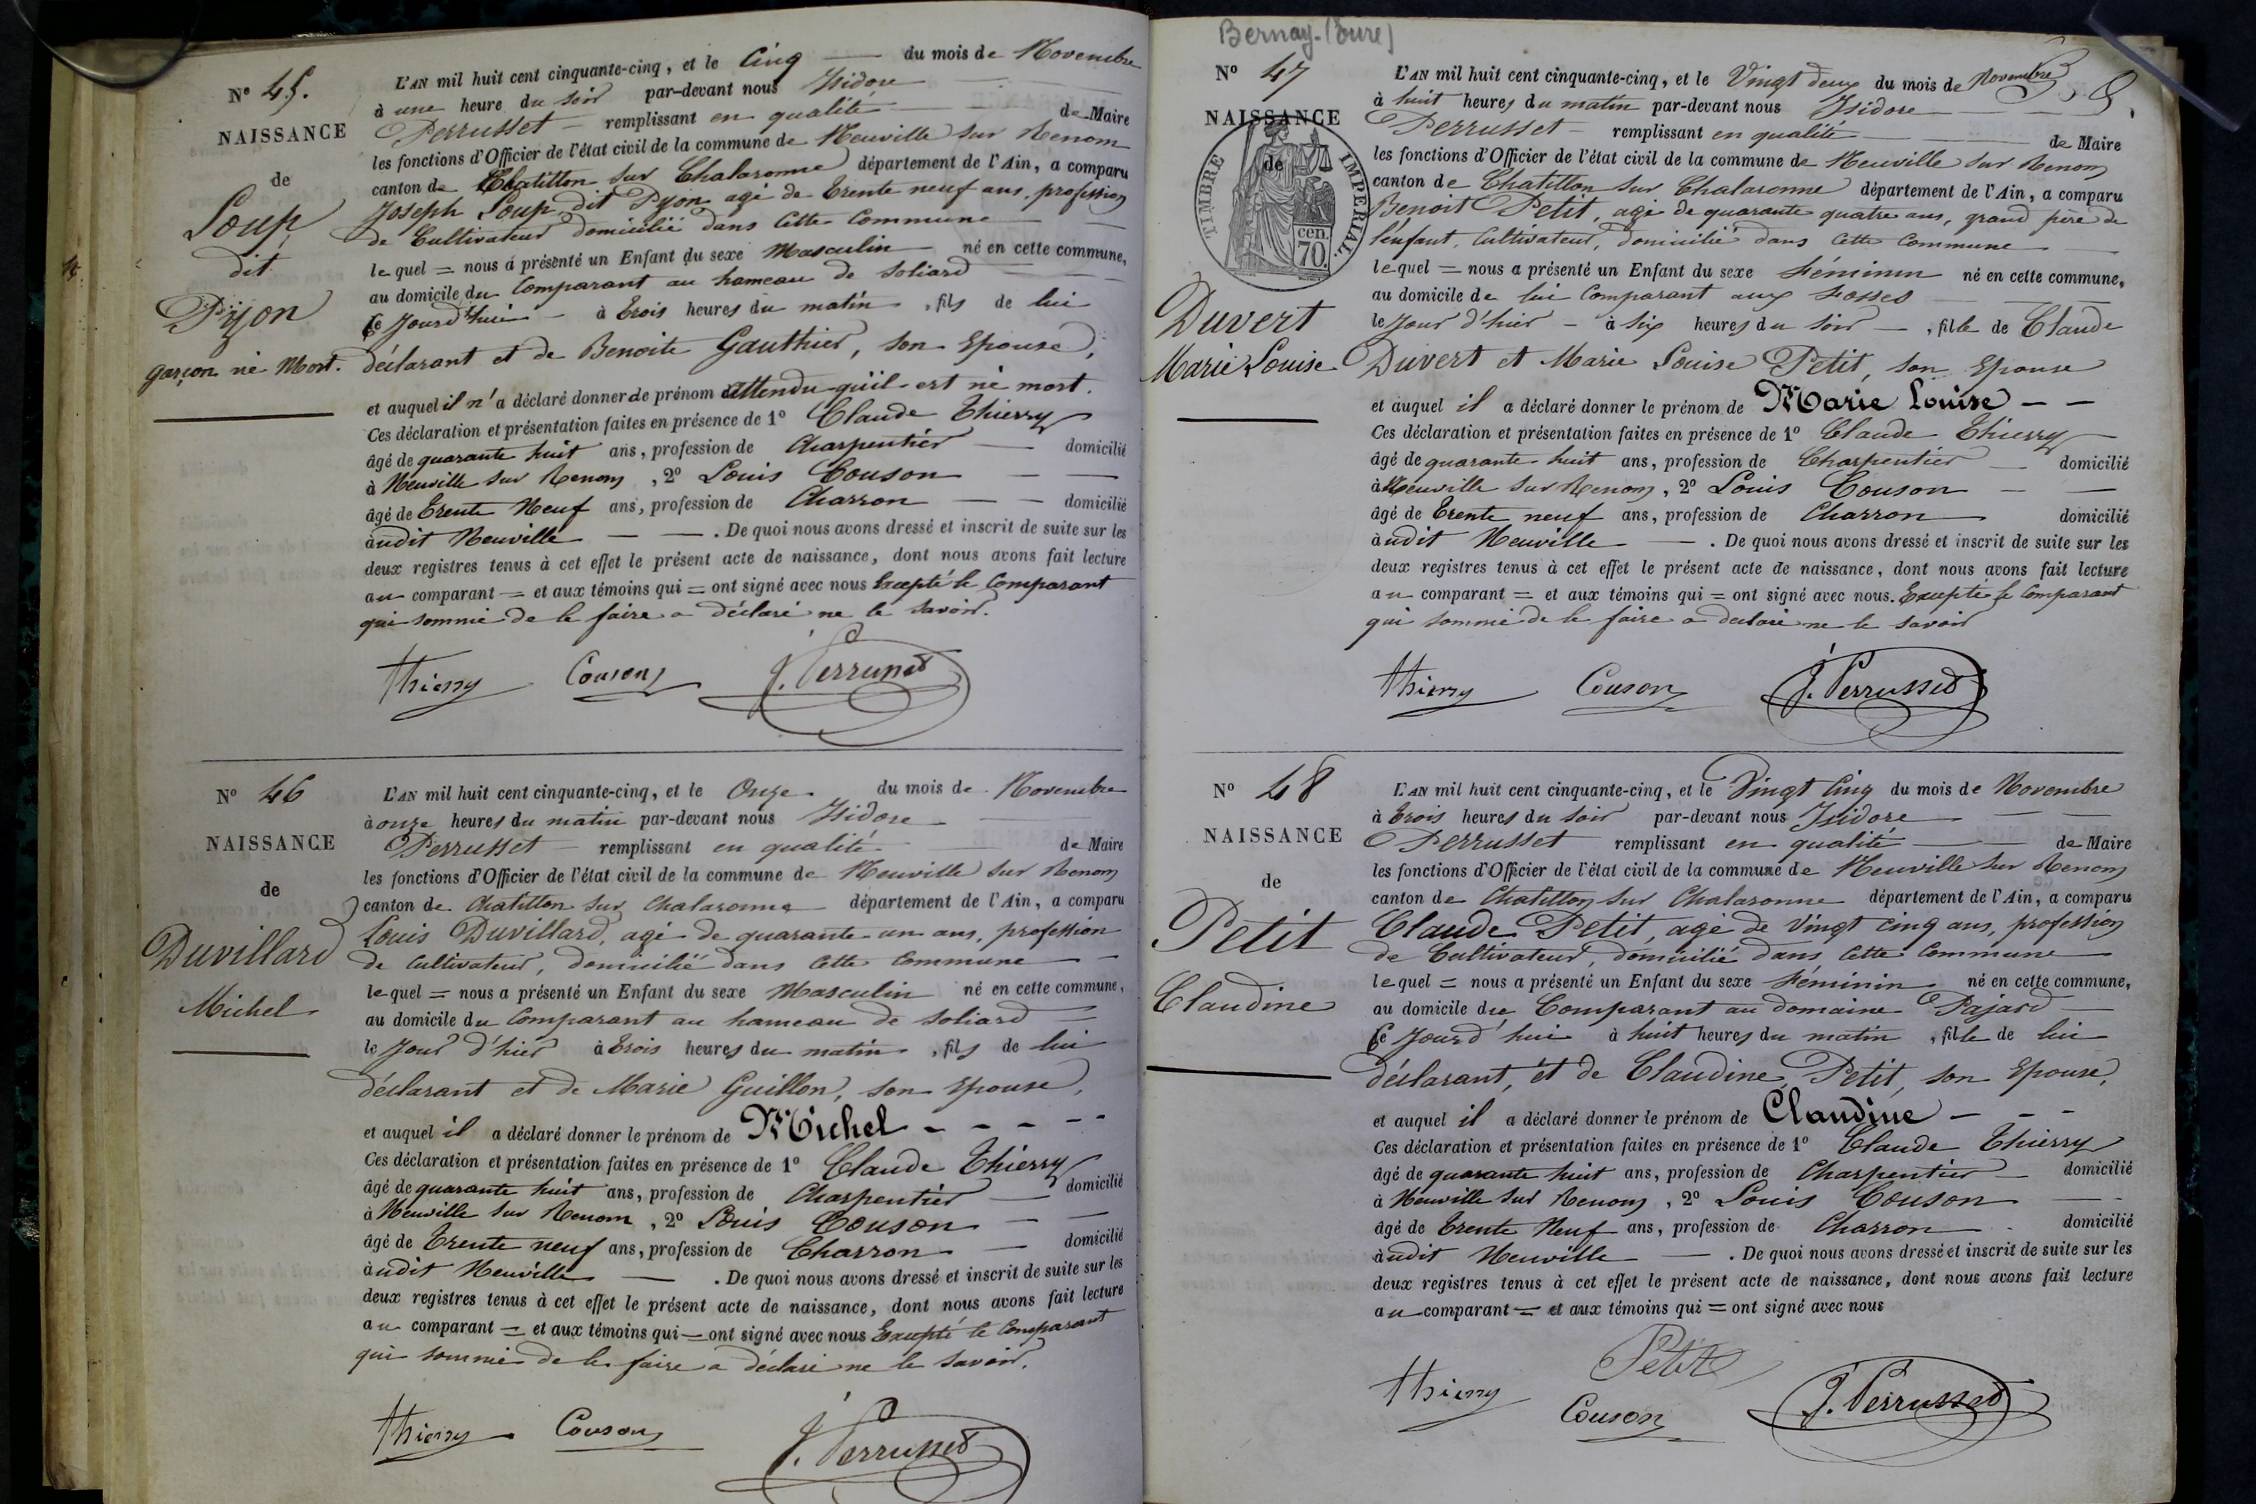 N° 45.
NAISSANCE
de
Loup
dit
Pyon
garçon né Mort.
L'AN mil huit cent cinquante-cinq, et le Cinq du mois de Novembre
à une heure du soir par-devant nous Isidore
Perrusset remplissant en qualité de Maire
les fonctions d'Officier de l'état civil de la commune de Neuville sur Renom
canton de Chatillon sur Chalaronne département de l'Ain, a comparu
Joseph Loup dit Pyon agé de trente neuf ans, profession
de Cultivateur domicilié dans cette Commune
lequel = nous à présenté un Enfant du sexe Masculin né en cette commune,
au domicile du Comparant au hameau de Soliard
Ce Jourd'hui à trois heures du matin, fils de lui
déclarant et de Benoite Gauthier, son Epouse,
et auquel il n'a déclaré donner de prénom attendu qu'il est né mort.
Ces déclaration et présentation faites en présence de 1° Claude Thierry
âgé de quarante huit ans, profession de Charpentier domicilié
à Neuville sur Renom, 2° Louis Couson
âgé de trente Neuf ans, profession de Charron domicilié
audit Neuville . De quoi nous avons dressé et inscrit de suite sur les
deux registres tenus à cet effet le présent acte de naissance, dont nous avons fait lecture
au comparant = et aux témoins qui = ont signé avec nous Excepté le Comparant
qui sommé de le faire a déclaré ne le savoir.
Thierry Couson J. Perrusset
N° 46
NAISSANCE
de
Duvillard
Michel
L'AN mil huit cent cinquante-cinq, et le Onze du mois de Novembre
à onze heures du matin par-devant nous Isidore
Perrusset remplissant en qualité de Maire
les fonctions d'Officier de l'état civil de la commune de Neuville sur Renom
canton de Chatillon sur Chalaronne département de l'Ain, a comparu
Louis Duvillard, agé de quarante un ans, profession
de Cultivateur, domicilié dans cette Commune
lequel = nous a présenté un Enfant du sexe Masculin né en cette commune,
au domicile du Comparant au hameau de Soliard
le Jour d'hier à trois heures du matin, fils de lui
déclarant et de Marie Guillon, son Epouse,
et auquel il a déclaré donner le prénom de Michel
Ces déclaration et présentation faites en présence de 1° Claude Thierry
âgé de quarante huit ans, profession de Charpentier domicilié
à Neuville sur Renom, 2° Louis Couson
âgé de trente neuf ans, profession de Charron domicilié
audit Neuville . De quoi nous avons dressé et inscrit de suite sur les
deux registres tenus à cet effet le présent acte de naissance, dont nous avons fait lecture
au comparant = et aux témoins qui = ont signé avec nous Excepté le Comparant
qui sommé de le faire a déclaré ne le savoir.
Thierry Couson J. Perrusset
Bernay. (Eure)
N° 47
NAISSANCE
de
TIMBRE IMPERIAL.
cen.
70.
Duvert
Marie Louise
L'AN mil huit cent cinquante-cinq, et le Vingt deux du mois de Novembre
à huit heures du matin par-devant nous Isidore
Perrusset remplissant en qualité de Maire
les fonctions d'Officier de l'état civil de la commune de Neuville sur Renom
canton de Chatillon sur Chalaronne département de l'Ain, a comparu
Benoit Petit, agé de quarante quatre ans, grand père de
l'enfant, Cultivateur, domicilié dans cette Commune
lequel = nous a présenté un Enfant du sexe Féminin né en cette commune,
au domicile de lui Comparant aux Fosses
le Jour d'hier à six heures du soir, fille de Claude
Duvert et Marie Louise Petit, son Epouse
et auquel il a déclaré donner le prénom de Marie Louise
Ces déclaration et présentation faites en présence de 1° Claude Thierry
âgé de quarante huit ans, profession de Charpentier domicilié
à Neuville sur Renom, 2° Louis Couson
âgé de trente neuf ans, profession de Charron domicilié
audit Neuville . De quoi nous avons dressé et inscrit de suite sur les
deux registres tenus à cet effet le présent acte de naissance, dont nous avons fait lecture
au comparant = et aux témoins qui = ont signé avec nous. Excepté le Comparant
qui sommé de le faire a déclaré ne le savoir
Thierry Couson J. Perrusset
N° 48
NAISSANCE
de
Petit
Claudine
L'AN mil huit cent cinquante-cinq, et le Vingt Cinq du mois de Novembre
à trois heures du soir par-devant nous Isidore
Perrusset remplissant en qualité de Maire
les fonctions d'Officier de l'état civil de la commune de Neuville sur Renom
canton de Chatillon sur Chalaronne département de l'Ain, a comparu
Claude Petit, agé de Vingt cinq ans, profession
de Cultivateur, domicilié dans cette Commune
lequel = nous a présenté un Enfant du sexe Féminin né en cette commune,
au domicile du Comparant au domaine Pajard
Ce Jourd'hui à huit heures du matin, fille de lui
déclarant, et de Claudine Petit, son Epouse,
et auquel il a déclaré donner le prénom de Claudine
Ces déclaration et présentation faites en présence de 1° Claude Thierry
âgé de quarante huit ans, profession de Charpentier domicilié
à Neuville sur Renom, 2° Louis Couson
âgé de trente Neuf ans, profession de Charron domicilié
audit Neuville . De quoi nous avons dressé et inscrit de suite sur les
deux registres tenus à cet effet le présent acte de naissance, dont nous avons fait lecture
au comparant = et aux témoins qui = ont signé avec nous
Petit
Thierry Couson J. Perrusset